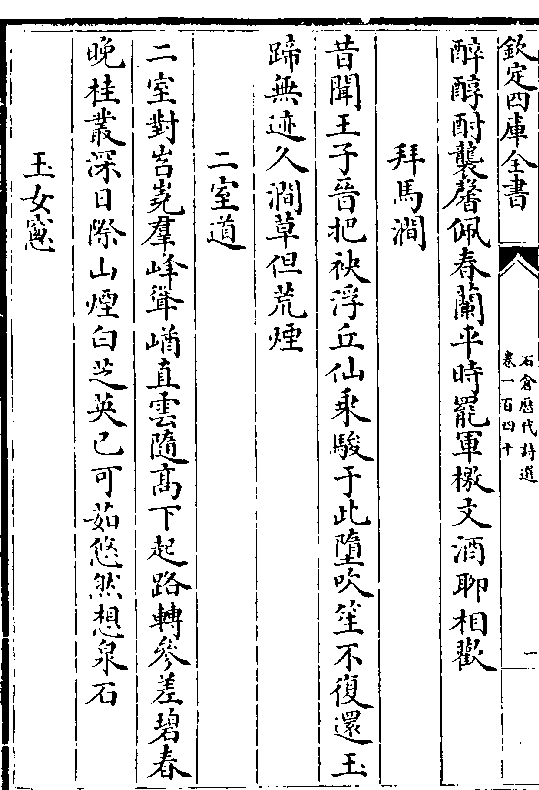 欽定四庫全書
石倉歷代詩選
卷一百四十
一
醉醇酎襲馨佩春蘭平時罷軍檄文酒聊相歡
拜馬澗
昔聞王子晉把袂浮丘仙乘駿于此墮吹笙不復還玉
蹄無迹久澗草但荒煙
二室道
二室對岧嶤羣峰聳崷直雲隨高下起路轉參差碧春
晚桂叢深日際山煙白芝英已可茹悠然想泉石
玉女窻